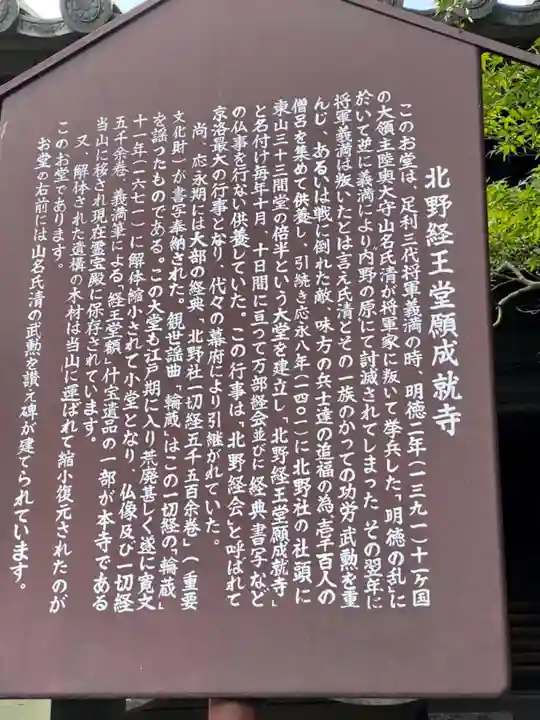 北野経王堂願成就寺
このお堂は、足利三代将軍義満の時、明徳二年（一三九一）十一ヶ国
の大領主陸奥大守山名氏清が将軍家に叛いて挙兵した「明徳の乱」に
於いて逆に義満により内野の原にて討滅されてしまった。その翌年に
将軍義満は叛いたとは言え氏清とその一族のかっての功労、武勲を重
んじ、あるいは戦に倒れた敵、味方の兵士達の追福の為、壱千百人の
僧呂を集めて供養し、引続き応永八年（一四〇一）に北野社の社頭に
東山三十三間堂の倍半という大堂を建立し「北野経王堂願成就寺」
と名付け毎年十月、十日間に亘って万部経会並びに経典書写など
の仏事を行ない供養していた。この行事は、「北野経会」と呼ばれて
京洛最大の行事となり、代々の幕府により引継がれていた。
尚、応永期には大部の経典、「北野社一切経五千五百余巻」（重要
文化財）が書写奉納された。観世謡曲、「輪蔵」はこの一切経の、「輪蔵」
を謡ったものである。この大堂も江戸期に入り荒廃甚しく遂に寛文
十一年（一六七一）に解体縮小されて小堂となり、仏像及び一切経
五千余巻、義満筆による「経王堂額」什宝遺品の一部が本寺である
当山に移され現在霊宝殿に保存されています。
又、解体された遺構の木材は当山に運ばれて縮小復元されたのが
このお堂であります。
お堂の右前には山名氏清の武勲を讃え碑が建てられています。